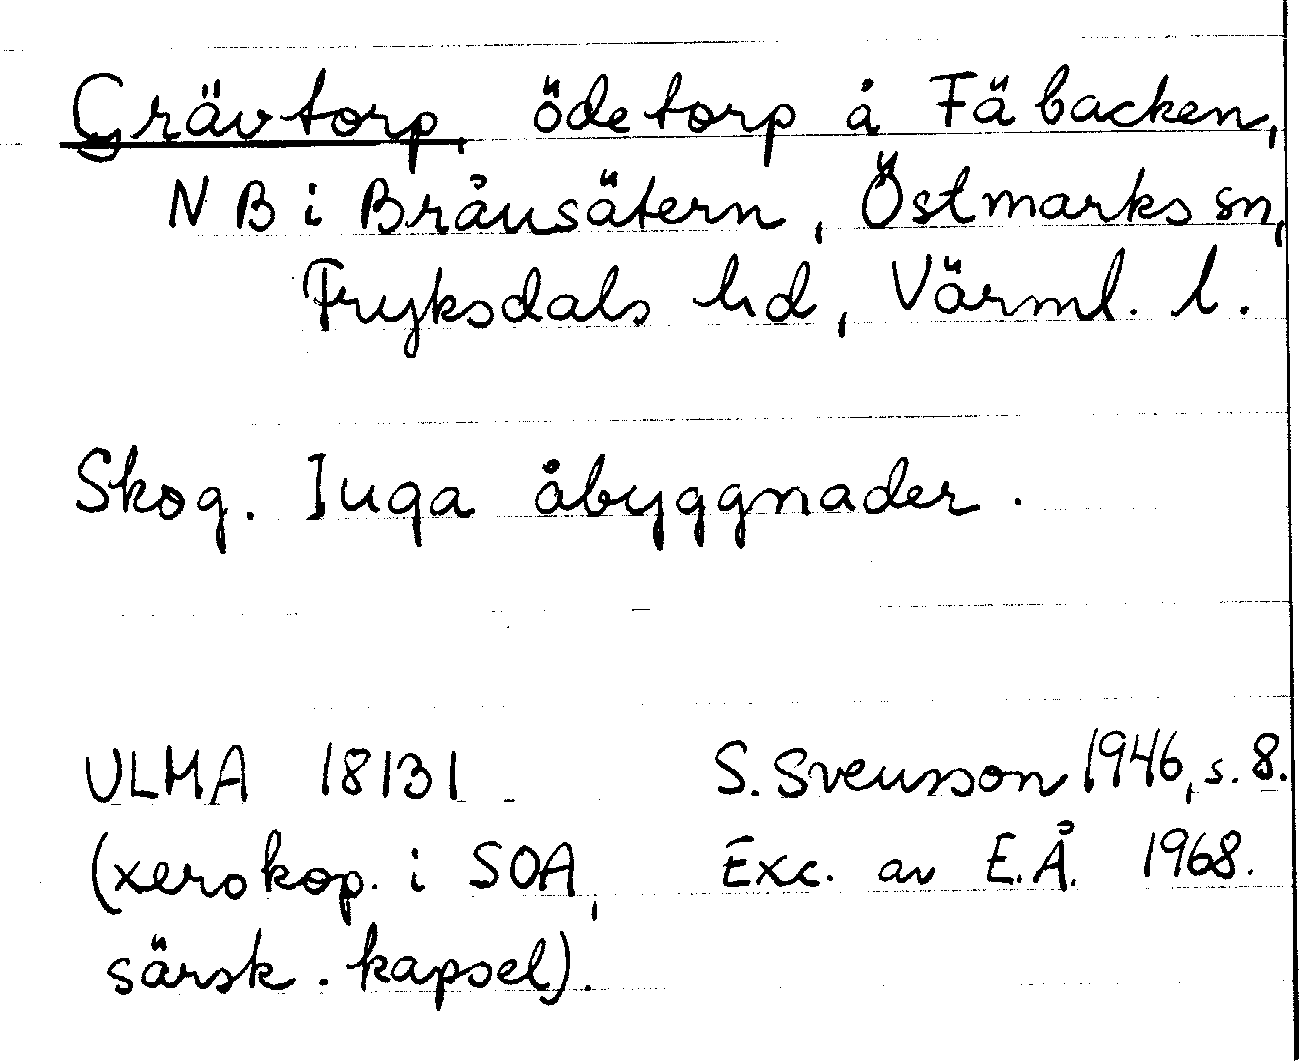 Grävtorp, ödetorp å Fäbacken,
NB i Bråusätern, Östmarks sn,
Fryksdals hd, Värml. l.
Skog. Inga åbyggnader.
ULMA 18131 S. Svensson 1946, s. 8.
(xerokop. i SOA, Exc. av E.Å. 1968.
särsk. kapsel).